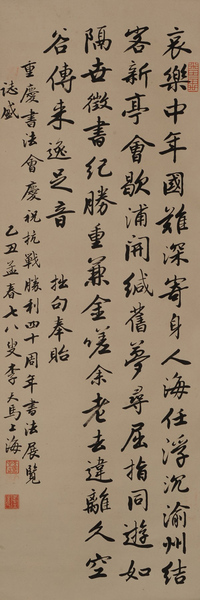 哀樂中年國難深寄身人海任浮沉渝州結
客新亭會歇浦開緘舊夢尋屈指同遊如
隔世徵書紀勝重兼金嗟余老去違離久空
谷傳來逸足音 拙句奉貽
重慶書法會慶祝抗戰勝利四十周年書法展覽
誌盛
乙丑孟春七八叟李天馬上海